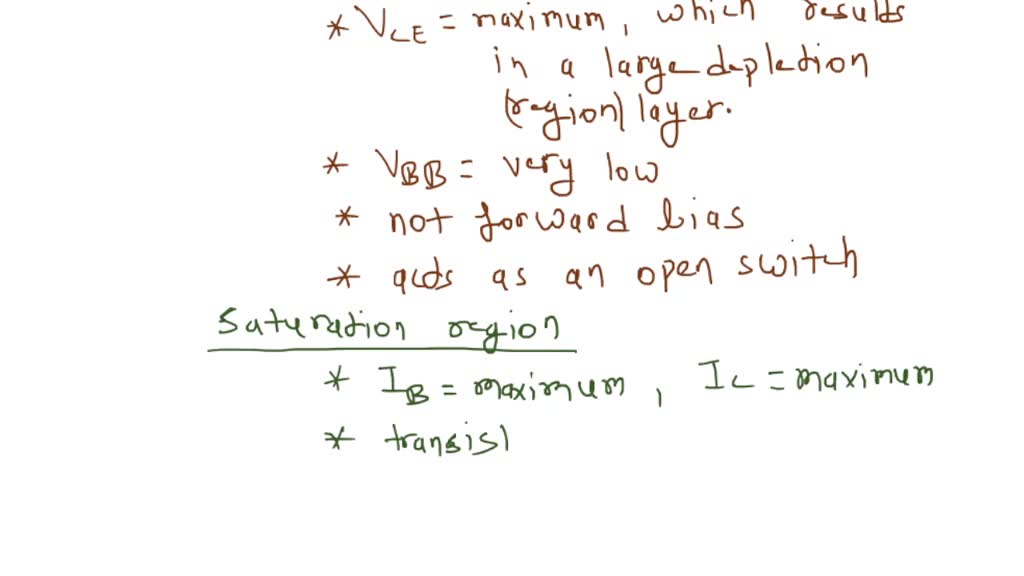 * VCE = maximum, which results
in a large depletion
(region) layer.
* VBB = very low
* not forward bias
* acts as an open switch
Saturation region
* IB = maximum, IC = maximum
* transis